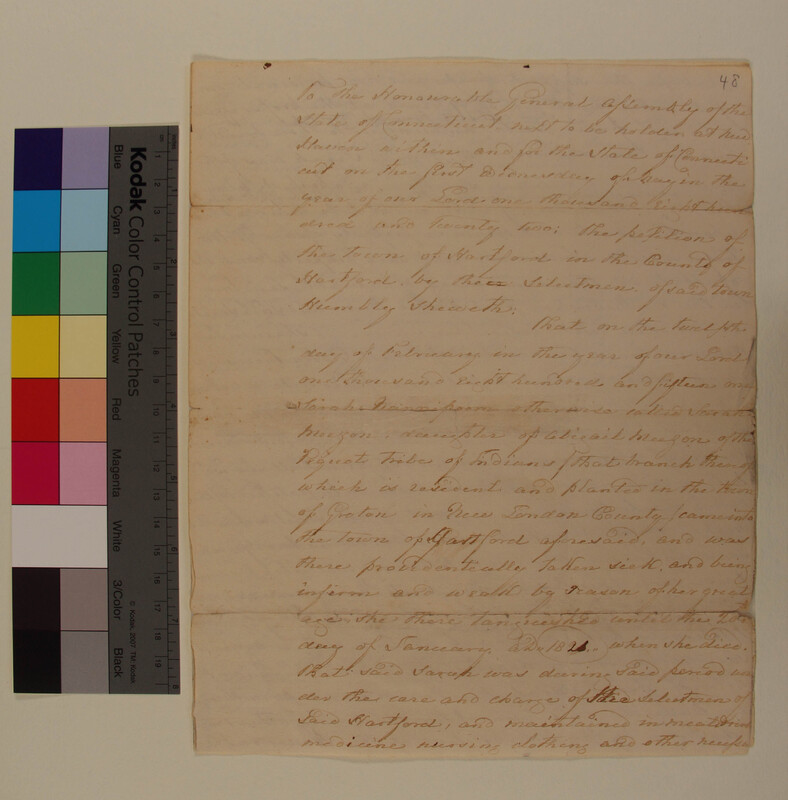 48
To the Honourable General Assembly of the
State of Connecticut next to be holden at New
Haven within and for the State of Connecti
cut on the first Wednesday of May in the
year of our Lord one thousand Eight hun
dred and twenty two; the petition of
the town of Hartford in the County of
Hartford by the Selectmen of said town
Humbly Sheweth.
That on the twelfth
day of February in the year of our Lord
one thousand eight hundred and fifteen one
Sarah otherwise called Sarah
Meazon daughter of Abigail Meazon of the
Pequote tribe of Indians (that branch thereof
which is resident and planted in the town
of Groton in New London County) came into
the town of Hartford aforesaid, and was
there providentially taken sick, and being
infirm and weak by reason of her great
age she there languished until the
day of January AD. 1821. when she died.
That said Sarah was during said period un
der the care and charge of the Selectmen of
said Hartford, and maintained in meat drink
medicine nursing clothing and other necessa
Kodak Color Control Patches
Blue
Cyan
Green
Yellow
Red
Magenta
White
3/Color
Black
© Kodak, 2007 TM: Kodak
cm 1 2 3 4 5 6 7 8 9 10 11 12 13 14 15 16 17 18 19